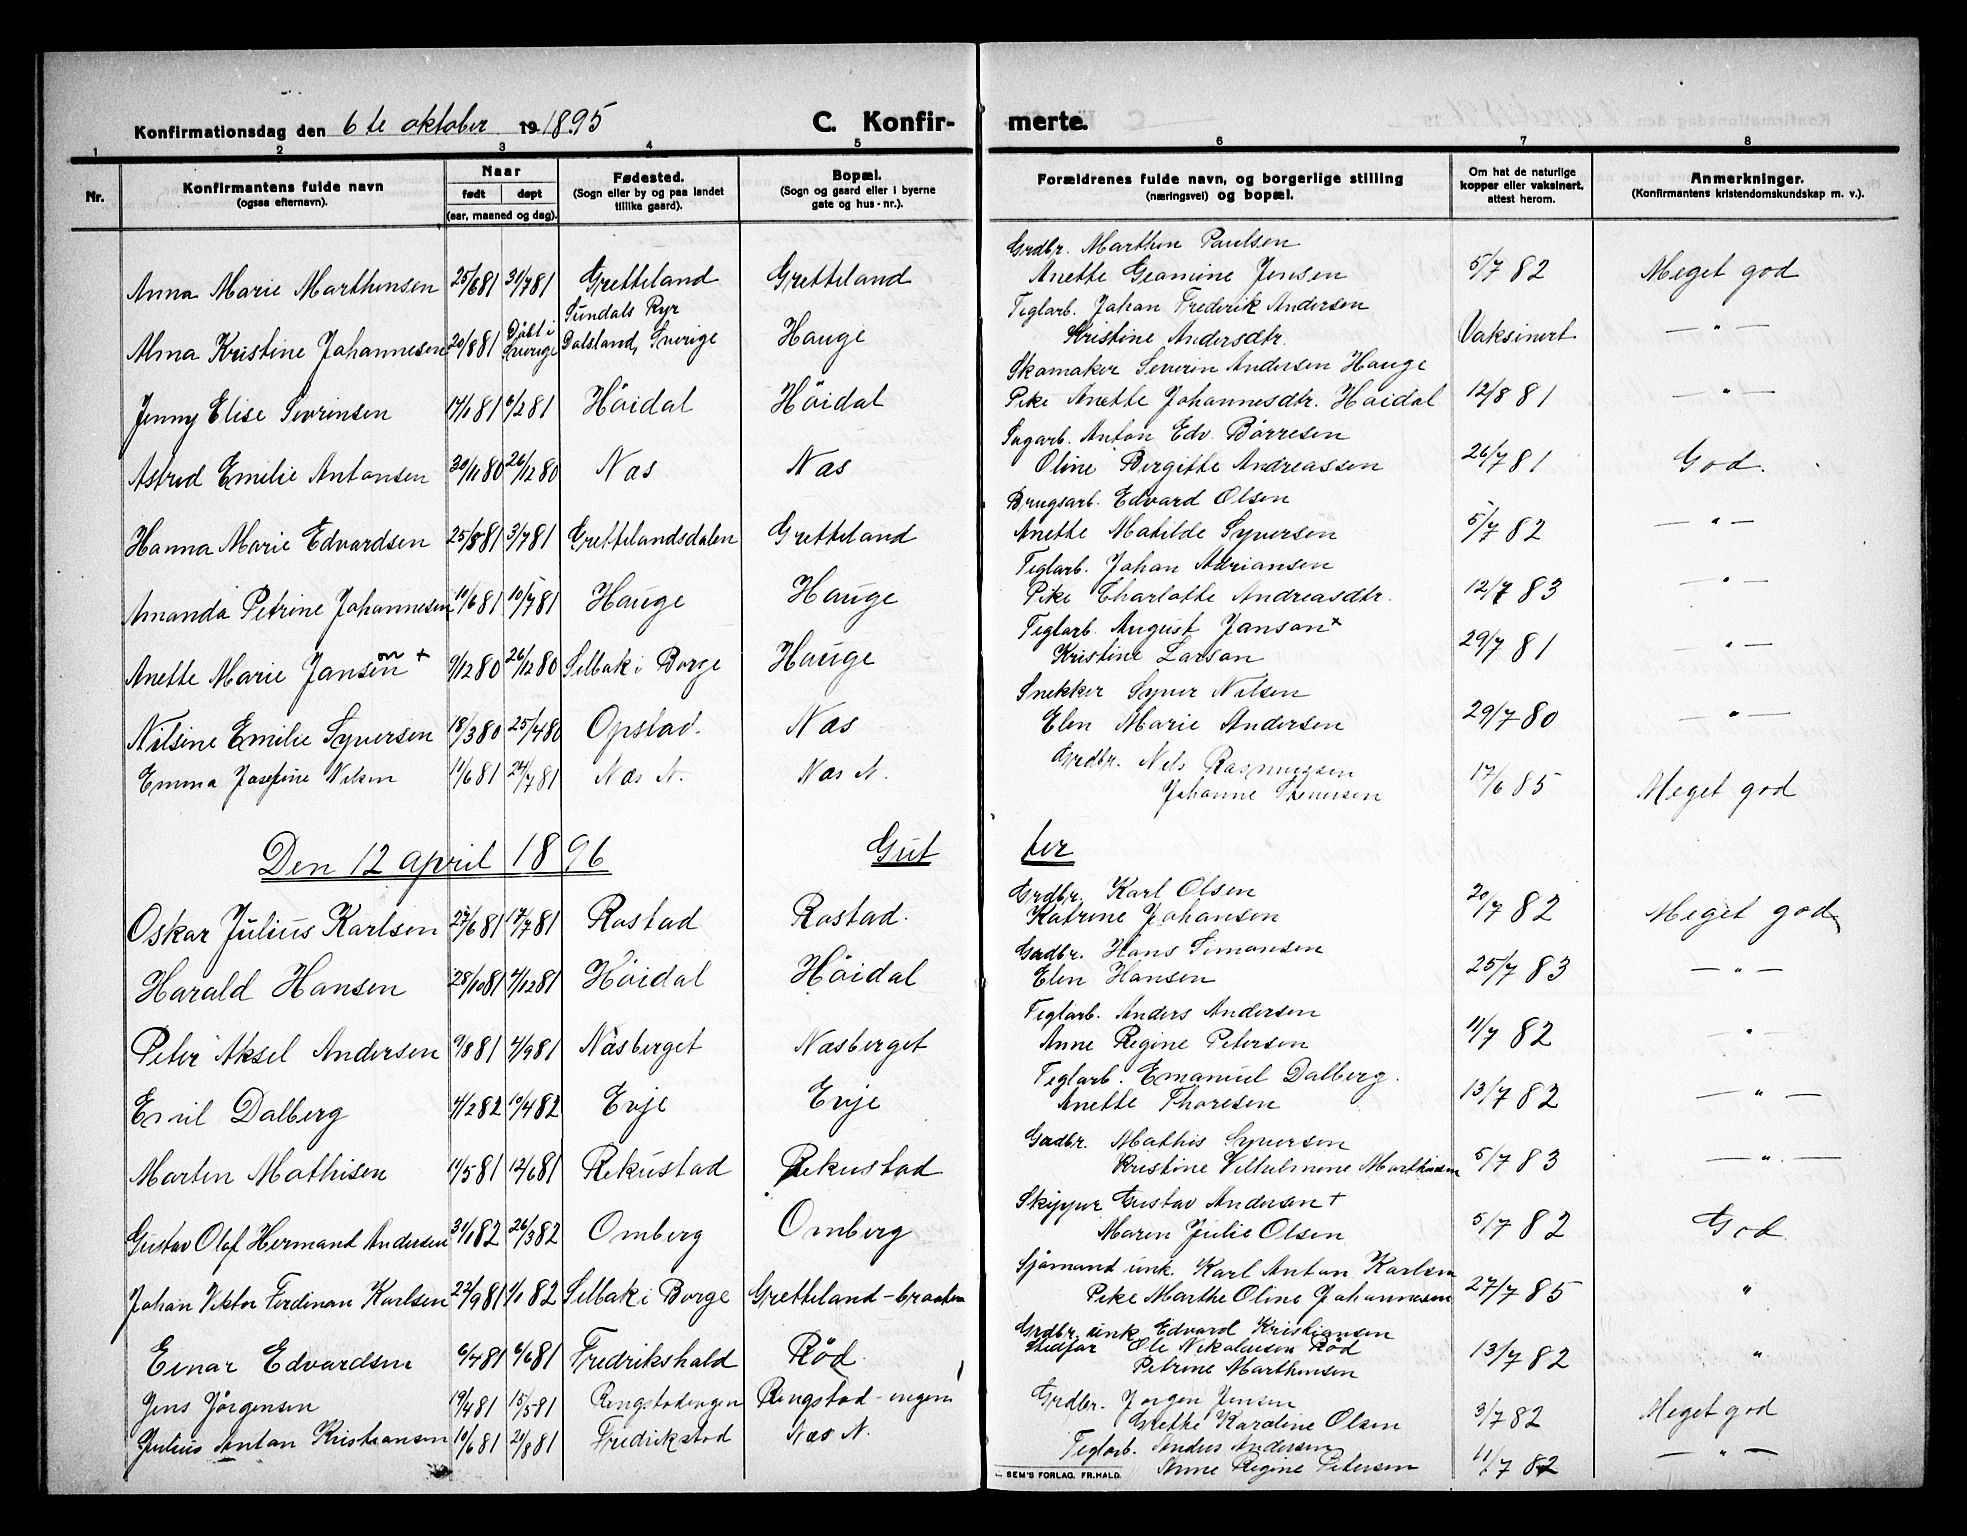 Konfirmationsdag den 6te oktober 19 1895 C. Konfir- merte.
1 2 3 4 5 6 7 8
Nr. Konfirmantens fulde navn (ogsaa efternavn). Naar født døpt (aar, maaned og dag). Fødested. (Sogn eller by og paa landet tillike gaard). Bopæl. (Sogn og gaard eller i byerne gate og hus-nr.). Forældrenes fulde navn, og borgerlige stilling (næringsvei) og bopæl. Om hat de naturlige kopper eller vaksinert, attest herom. Anmerkninger. (Konfirmantens kristendomskundskap m. v.).
Grdbr. Marthin Paulsen
Anna Marie Marthinsen 25/6 81 31/7 81 Gretteland Gretteland Anette Geamine Jensen 5/7 82 Meget god
Sundals Ryr Teglarb. Johan Frederik Andersen
Alma Kristine Johannesen 20/8 81 Døbt i Sverige Dalsland, Sverige Hauge Kristine Andersdtr. Vaksinert — " —
Skomaker Severin Andersen Hauge
Jenny Elise Sevrinsen 14/1 81 6/2 81 Höidal Höidal Pike Anette Johannesdtr. Höidal 12/8 81 — " —
Sagarb. Anton Edv. Börresen
Astrid Emilie Antonsen 30/11 80 26/12 80 Næs Næs Oline Bergitte Andreassen 26/7 81 God.
Brugsarb. Edvard Olsen
Hanna Marie Edvardsen 25/5 81 3/7 81 Grettelandsdalen Gretteland Anette Matilde Syversen 5/7 82 — " —
Teglarb. Johan Adriansen
Amanda Petrine Johannesen 11/6 81 10/7 81 Hauge Hauge Pike Charlotte Andreasdtr. 12/7 83 — " —
Teglarb. August Janson +
Anette Marie Janson + 9/12 80 26/12 80 Selbak i Borge Hauge Kristine Larson 29/7 81 — " —
Snekker Syver Nilsen
Nilsine Emilie Syversen 18/3 80 25/4 80 Opstad. Næs Elen Marie Andersen 29/7 80 — " —
Grdbr. Nils Rasmussen
Emma Josefine Nilsen 11/6 81 24/7 81 Næs N. Næs N. Johanne 17/6 85 Meget god
Den 12 april 1896 Gut ter
Grdbr. Karl Olsen
Oskar Julius Karlsen 27/6 81 17/7 81 Rostad Rostad. Katrine Johansen 20/7 82 Meget god
Gadbr. Hans Simonsen
Harald Hansen 28/10 81 4/12 81 Höidal Höidal Elen Hansen 25/7 83 — " —
Teglarb. Anders Andersen
Peter Aksel Andersen 9/8 81 4/9 81 Næsberget Næsberget Anne Regine Petersen 11/7 82 "
Teglarb. Emanuel Dalberg.
Emil Dalberg 4/2 82 10/4 82 Evje Evje Anette Thoresen 13/7 82 — " —
Gadbr. Mathis Syversen
Marten Mathisen 11/5 81 12/6 81 Rekustad Rekustad Kristine Vilhelmine Marthinsen 5/7 83 — " —
Skipper Gustav Andersen +
Gustav Olaf Hermand Andersen 31/1 82 26/3 82 Omberg Omberg Maren Julie Olsen 5/7 82 God
Sjömand unk. Karl Anton Karlsen
Johan Viktor Ferdinan Karlsen 22/9 81 1/1 82 Selbak i Borge Gretteland-braaten Pike Marthe Oline Johannesen 27/7 85 "
Grdbr. unk Edvard Kristiansen
Stedfar Ole Nikolaisen Röd
Einar Edvardsen 6/4 81 6/6 81 Fredrikshald Röd. Petrine Marthinsen 13/7 82 "
Grdbr. Jörgen Jensen
Jens Jörgensen 19/4 81 15/5 81 Ringstadengen Ringstad-engen Grethe Karoline Olsen 3/7 82 Meget god
Teglarb. Anders Andersen
Julius Anton Kristiansen 10/6 81 21/8 81 Fredrikstad Næs N. Anne Regine Petersen 11/7 82 — " —
SEM'S FORLAG. FR.HALD.